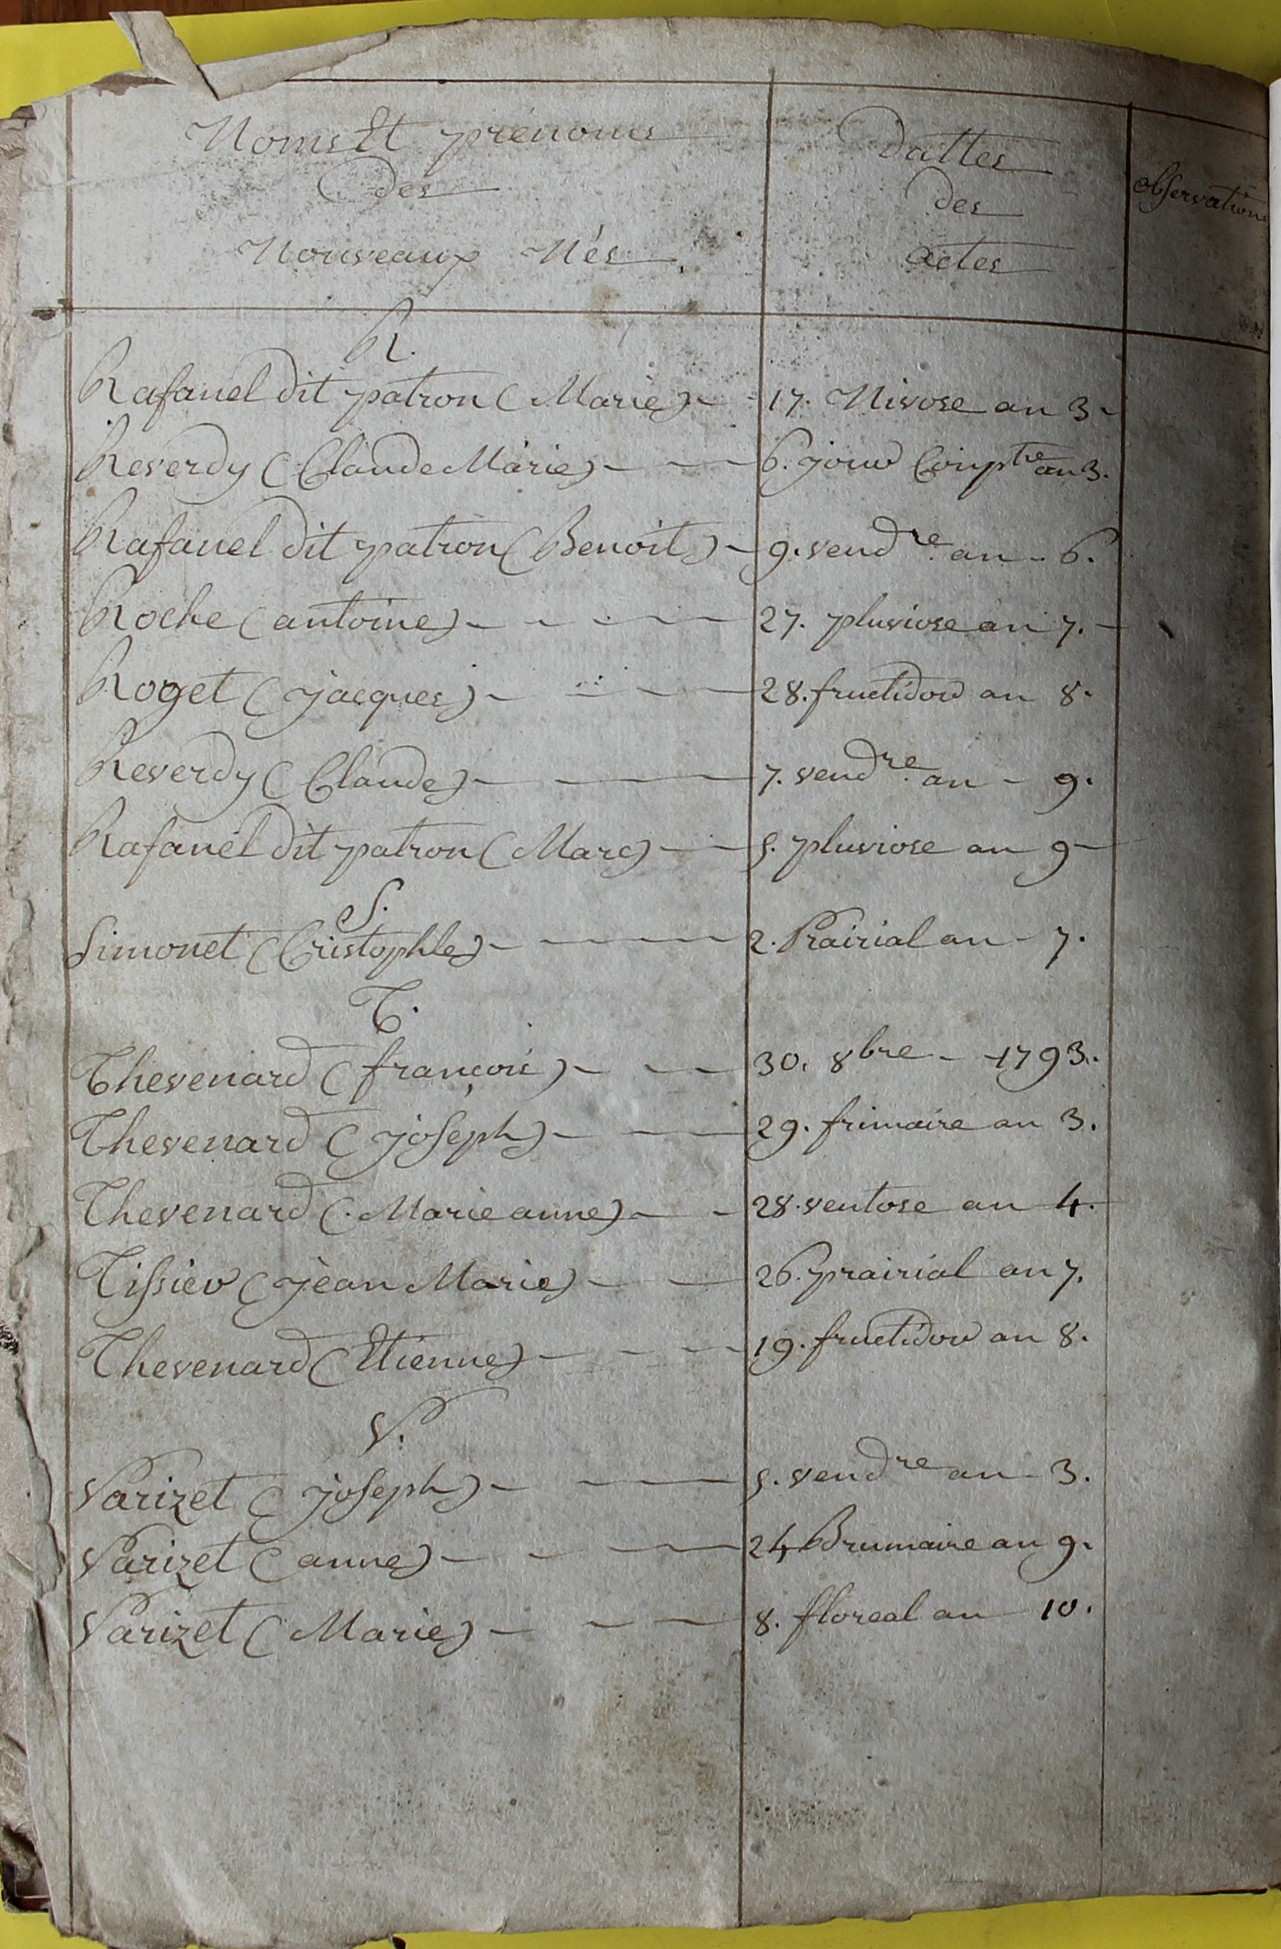 Noms Et prénoms
des
Nouveaux Nés
Dattes
des
actes
observations
R.
Rafanel dit patron (Marie) - 17. Nivose an 3 -
Reverdy (Claude Marie) - - 6. jour Compre an 3.
Rafanel dit patron (Benoit) - 9. vendre an - 6.
Roche (antoine) - - - - 27. pluviose an 7. -
Roget (jacques) - - - - 28. fructidor an 8.
Reverdy (Claude) - - - 7. vendre an - 9.
Rafanel dit patron (Marc) - - 5. pluviose an 9 -
S.
Simonet (Cristophle) - - - - 2. Prairial an - 7.
T.
Thevenard (françois) - - - 30. 8bre - 1793.
Thevenard (joseph) - - - 29. frimaire an 3.
Thevenard (Marie anne) - - 28. ventose an 4.
Tissier (jean Marie) - - 26. prairial an 7.
Thevenard (Etienne) - - - 19. fructidor an 8.
V.
Varizet (joseph) - - - 5. vendre an - 3.
Varizet (anne) - - - 24 Brumaire an 9.
Varizet (Marie) - - - 8. floreal an 10.